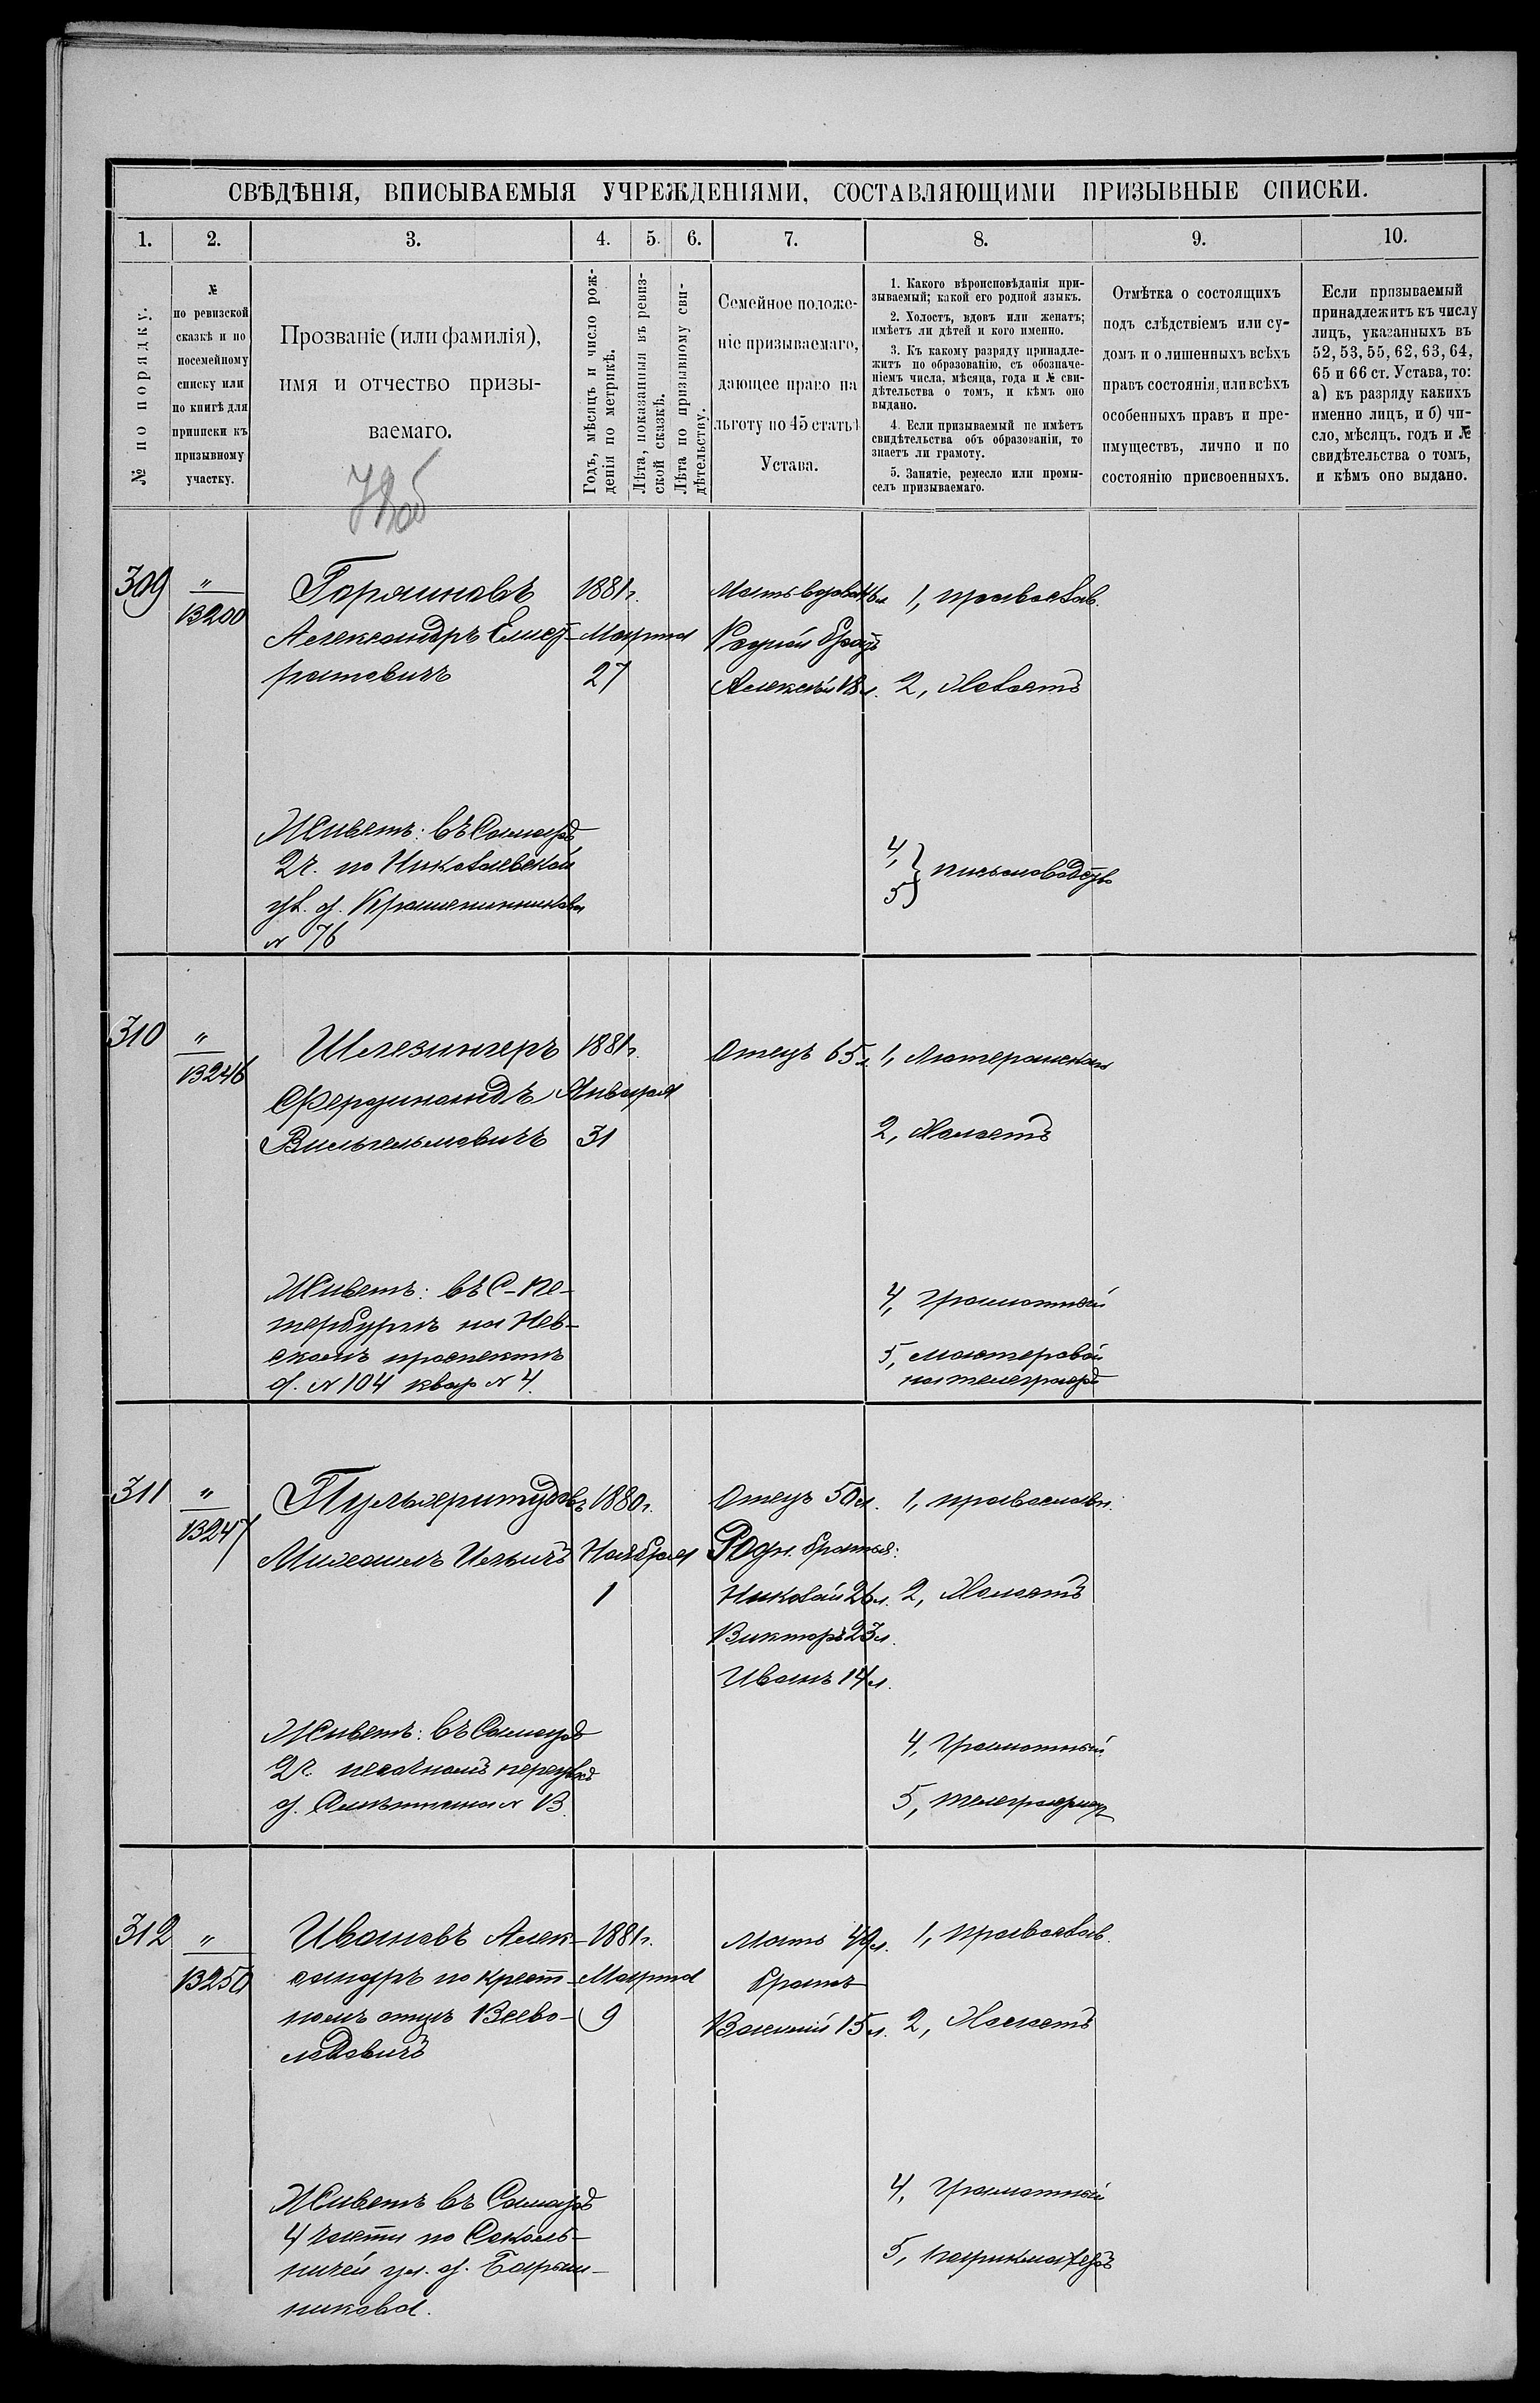 СВѢДѢНІЯ, ВПИСЫВАЕМЫЯ УЧРЕЖДЕНІЯМИ, СОСТАВЛЯЮЩИМИ ПРИЗЫВНЫЕ СПИСКИ.
1. 2. 3. 4. 5. 6. 7. 8. 9. 10.
№ по порядку.
№
по ревизской
сказкѣ и по
посемейному
списку или
по книгѣ для
приписки къ
призывному
участку.
Прозваніе (или фамилія),
имя и отчество призы-
ваемаго.
Годъ, мѣсяцъ и число рож-
денія по метрикѣ.
Лѣта, показанныя въ ревиз-
ской сказкѣ.
Лѣта по призывному сви-
дѣтельству.
Семейное положе-
ніе призываемаго,
дающее право на
льготу по 45 статьѣ
Устава.
1. Какого вѣроисповѣданія при-
зываемый; какой его родной языкъ.
2. Холостъ, вдовъ или женатъ;
имѣетъ ли дѣтей и кого именно.
3. Къ какому разряду принадле-
житъ по образованію, съ обозначе-
ніемъ числа, мѣсяца, года и № сви-
дѣтельства о томъ, и кѣмъ оно
выдано.
4. Если призываемый не имѣетъ
свидѣтельства объ образованіи, то
знаетъ ли грамоту.
5. Занятіе, ремесло или промы-
селъ призываемаго.
Отмѣтка о состоящихъ
подъ слѣдствіемъ или су-
домъ и о лишенныхъ всѣхъ
правъ состоянія, или всѣхъ
особенныхъ правъ и пре-
имуществъ, лично и по
состоянію присвоенныхъ.
Если призываемый
принадлежитъ къ числу
лицъ, указанныхъ въ
52, 53, 55, 62, 63, 64,
65 и 66 ст. Устава, то:
а) къ разряду какихъ
именно лицъ, и б) чи-
сло, мѣсяцъ, годъ и №
свидѣтельства о томъ,
и кѣмъ оно выдано.
309 " 13200 Горяиновъ 1881 г. Мать вдова 46 л. 1, православ.
Александръ Елист- Марта Родной братъ
ратовичъ 27 Алексѣй 18 л. 2, Холостъ
Живетъ: въ Самарѣ
2 ч. по Николаевской
ул. д. Крашенинникова
№ 76
4,
5, } письмоводство
310 " 13246 Шлезингеръ 1881 г. Отецъ 65 л. 1, Лютеранскаго
Фердинандъ Января
Вильгельмовичъ 31 2, Холостъ
Живетъ: въ С-Пе-
тербургѣ на Нев-
скомъ проспектѣ
д. № 104 квар № 4.
4, Грамотный
5, мастеровой
на телеграфѣ
311 " 13247 Пульхеритудовъ 1880 г. Отецъ 50 л. 1, православн.
Михаилъ Ильичъ Ноября Родн. братья:
1 Николай 26 л. 2, Холостъ
Викторъ 23 л.
Иванъ 14 л.
Живетъ: въ Самарѣ
2 ч. песочномъ переулкѣ
№ 13.
4, Грамотный
5, телеграфистъ
312 " 13250 Ивановъ Алек- 1881 г. Мать 49 л. 1, православ.
сандръ по крест- Марта братъ
номъ отцѣ Всево- 9 Василій 15 л. 2, Холостъ
лодовичъ
Живетъ въ Самарѣ
4 части по Соколь-
ничей ул. д. Барын-
никова.
4, Грамотный
5, парикмахеръ